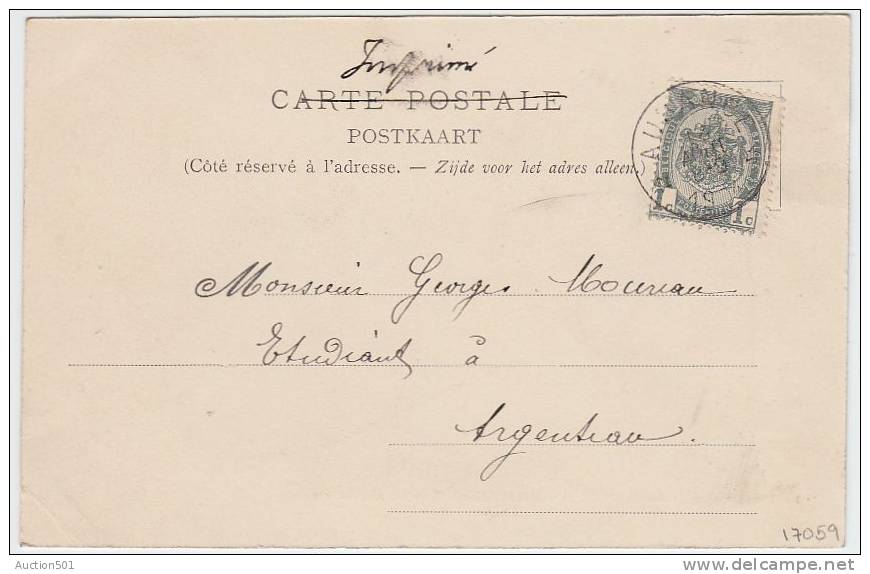 Imprimé
CARTE POSTALE
POSTKAART
(Côté réservé à l'adresse. — Zijde voor het adres alleen.)
1c 1c
Monsieur Georges Moureau
Etudiant à
Argenteau.
17059
Auction501
delcampe.net